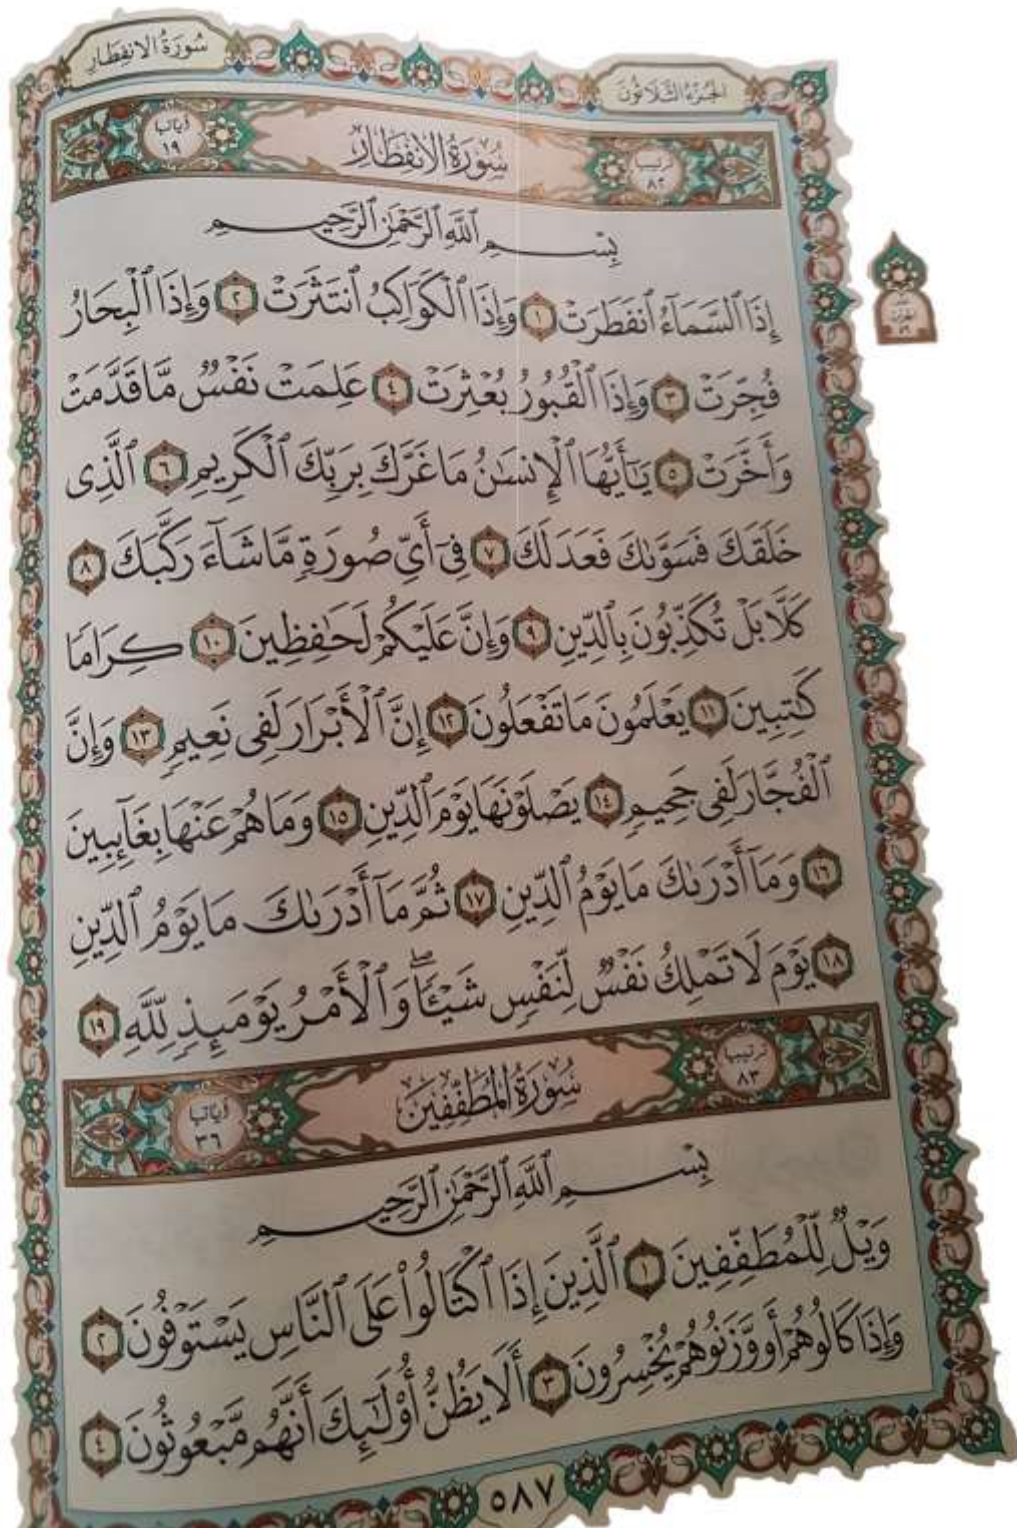 سُورَةُ الانفِطَارِ
الجُزْءُ الثَّلَاثُونَ
ترتيبها ٨٢
سُورَةُ الانفِطَارِ
آياتها ١٩
بِسْمِ ٱللَّهِ ٱلرَّحْمَٰنِ ٱلرَّحِيمِ
إِذَا ٱلسَّمَآءُ ٱنفَطَرَتْ ١ وَإِذَا ٱلْكَوَاكِبُ ٱنتَثَرَتْ ٢ وَإِذَا ٱلْبِحَارُ
فُجِّرَتْ ٣ وَإِذَا ٱلْقُبُورُ بُعْثِرَتْ ٤ عَلِمَتْ نَفْسٌ مَّا قَدَّمَتْ
وَأَخَّرَتْ ٥ يَٰٓأَيُّهَا ٱلْإِنسَٰنُ مَا غَرَّكَ بِرَبِّكَ ٱلْكَرِيمِ ٦ ٱلَّذِى
خَلَقَكَ فَسَوَّىٰكَ فَعَدَلَكَ ٧ فِىٓ أَىِّ صُورَةٍ مَّا شَآءَ رَكَّبَكَ ٨
كَلَّا بَلْ تُكَذِّبُونَ بِٱلدِّينِ ٩ وَإِنَّ عَلَيْكُمْ لَحَٰفِظِينَ ١٠ كِرَامًا
كَٰتِبِينَ ١١ يَعْلَمُونَ مَا تَفْعَلُونَ ١٢ إِنَّ ٱلْأَبْرَارَ لَفِى نَعِيمٍ ١٣ وَإِنَّ
ٱلْفُجَّارَ لَفِى جَحِيمٍ ١٤ يَصْلَوْنَهَا يَوْمَ ٱلدِّينِ ١٥ وَمَا هُمْ عَنْهَا بِغَآئِبِينَ
١٦ وَمَآ أَدْرَىٰكَ مَا يَوْمُ ٱلدِّينِ ١٧ ثُمَّ مَآ أَدْرَىٰكَ مَا يَوْمُ ٱلدِّينِ
١٨ يَوْمَ لَا تَمْلِكُ نَفْسٌ لِّنَفْسٍ شَيْـًٔا ۖ وَٱلْأَمْرُ يَوْمَئِذٍ لِّلَّهِ ١٩
ترتيبها ٨٣
سُورَةُ المُطَفِّفِينَ
آياتها ٣٦
بِسْمِ ٱللَّهِ ٱلرَّحْمَٰنِ ٱلرَّحِيمِ
وَيْلٌ لِّلْمُطَفِّفِينَ ١ ٱلَّذِينَ إِذَا ٱكْتَالُوا۟ عَلَى ٱلنَّاسِ يَسْتَوْفُونَ ٢
وَإِذَا كَالُوهُمْ أَو وَّزَنُوهُمْ يُخْسِرُونَ ٣ أَلَا يَظُنُّ أُو۟لَٰٓئِكَ أَنَّهُم مَّبْعُوثُونَ ٤
٥٨٧